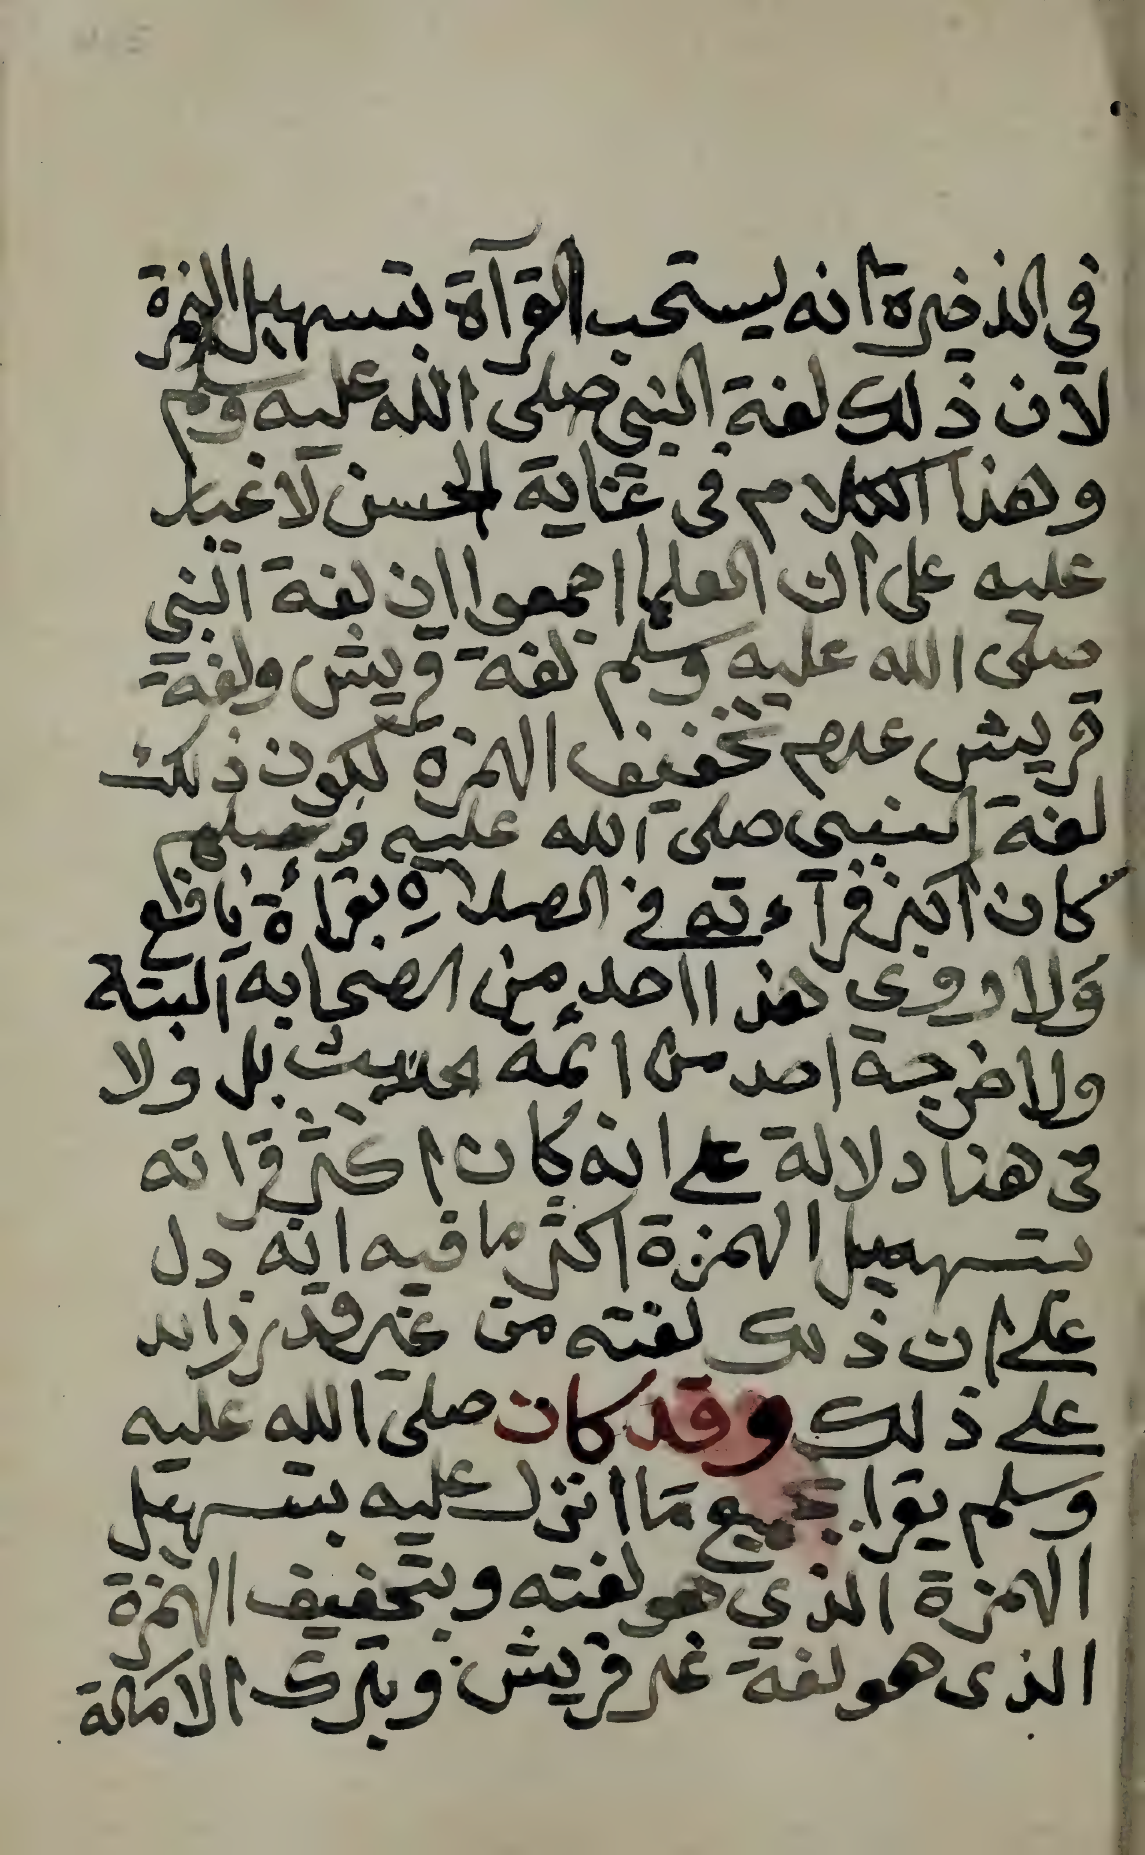 في الذخيرة انه يستحب القرآة بتسهيل الهمزة
لان ذلك لغة النبي صلى الله عليه وسلم
وهذا الكلام في غاية الحسن لا غبار
عليه على ان العلما اجمعوا ان لغة النبي
صلى الله عليه وسلم لغة قريش ولغة
قريش عدم تخفيف الهمزة لكون ذلك
لغة النبي صلى الله عليه وسلم
كان اكثر قرآءته في الصلاة بقراءة نافع
ولا روي هذا احد من الصحابه البتة
ولا خرجة احد من ائمه الحديث بل ولا
في هذا دلالة على انه كان اكثر قراته
بتسهيل الهمزة اكثر ما فيه انه دل
على ان ذلك لغته من غير قدر زايد
على ذلك وقد كان صلى الله عليه
وسلم يقرا بجميع ما انزل عليه بتسهيل
الهمزة الذي هو لغته وبتحفيف الهمزة
الذى هو لغة غير قريش وبترك الامالة